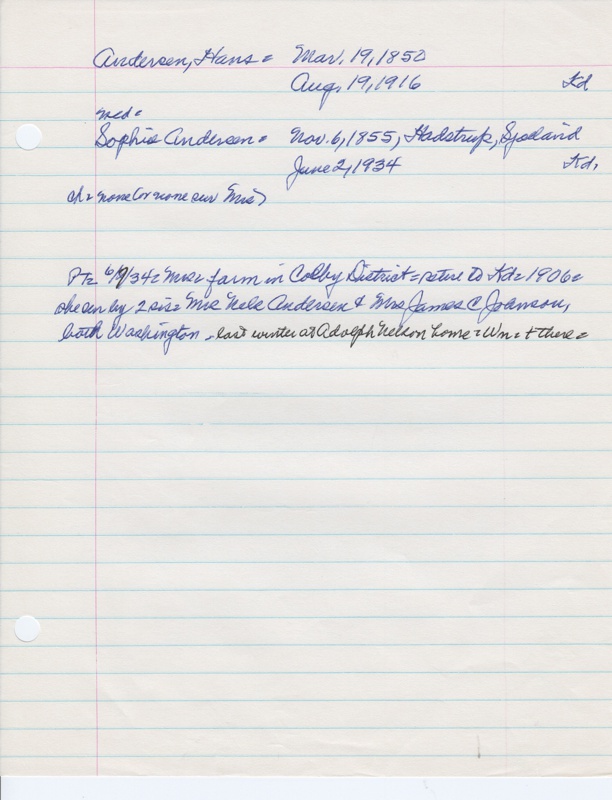 Andersen, Hans = Mar. 19, 1850
Aug. 19, 1916 Kd
med =
Sophie Andersen = Nov. 6, 1855, Hadstrup, Sjaelland
June 2, 1934 Kd,
ch = none (or none sur Mrs)
PT = 6/9/34 = Mrs = farm in Colby District = retire to Kd = 1906 =
she sur by 2 sis = Mrs Nels Andersen & Mrs James C Johnson,
both Washington - last winter at Adolph Nelson home = Wn = + there =